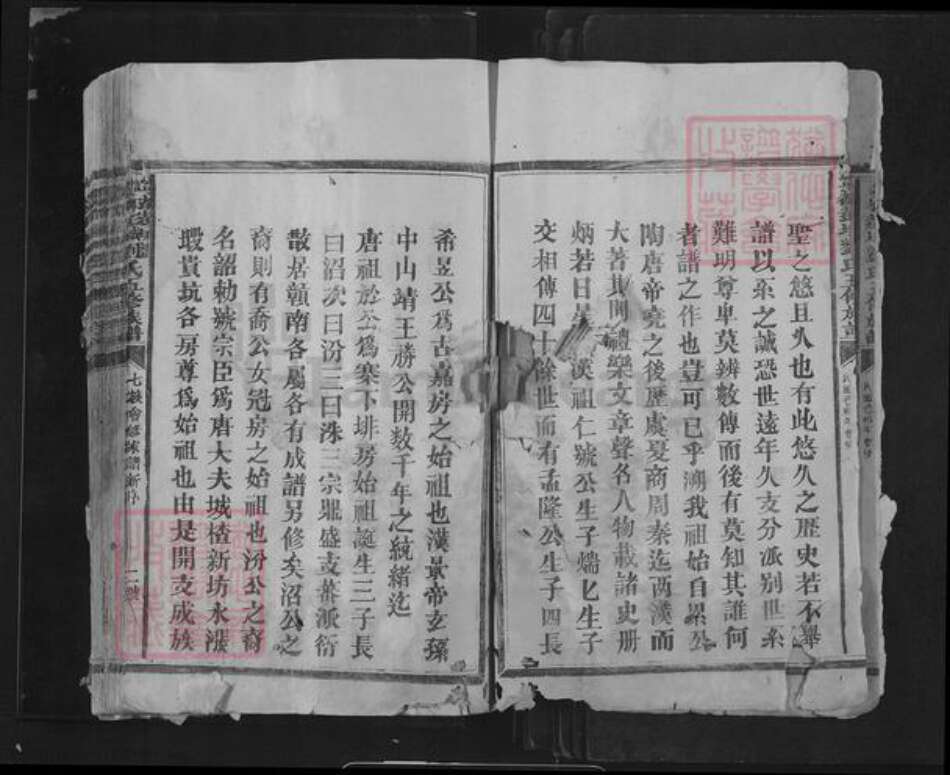 聖之悠且久也有此悠久之歷史若不舉
譜以系之誠恐世遠年久支分派別世系
難明尊卑莫辨數傳而後有莫知其誰何
者譜之作也豈可已乎溯我祖始自累公
陶唐帝堯之後歷虞夏商周秦迄两漢而
大著其間禮樂文章聲名人物載諸史册
炳若日星漢祖仁號公生子煓煓生子
交相傳四十餘世而有孟隆公生子四長
希昱公爲古嘉房之始祖也漢景帝玄孫
中山靖王勝公開数千年之統緒迄
唐祖於公爲寨下排房始祖誕生三子長
曰沼次曰汾三曰洙三宗鼎盛支蕃派衍
散居贛南各屬各有成譜另修矣沼公之
裔則有喬公女冠房之始祖也汾公之裔
名韶勅號宗臣爲唐大夫城楂新坊水漲
瑕黃坑各房尊爲始祖也由是開支成族
氏五修族譜
七
修
譜新序
二號